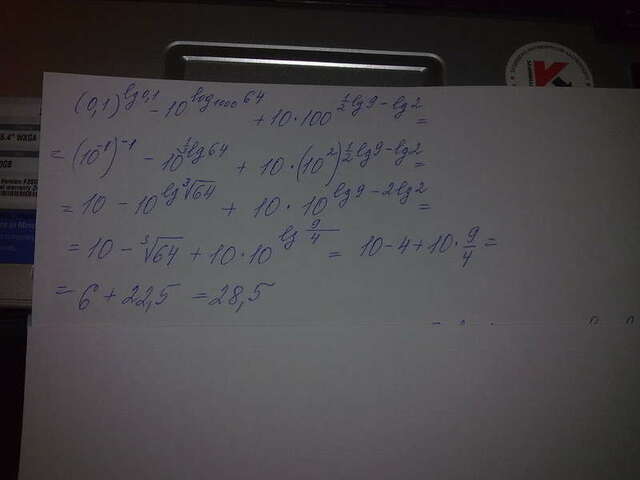 (0,1)^{lg 0,1} - 10^{log_{1000} 64} + 10·100^{\frac{1}{2} lg 9 - lg 2} =
= (10^{-1})^{-1} - 10^{\frac{1}{3} lg 64} + 10·(10^2)^{\frac{1}{2} lg 9 - lg 2} =
= 10 - 10^{lg ∛64} + 10·10^{lg 9 - 2 lg 2} =
= 10 - ∛64 + 10·10^{lg \frac{9}{4}} = 10 - 4 + 10·\frac{9}{4} =
= 6 + 22,5 = 28,5
5.4" WXGA